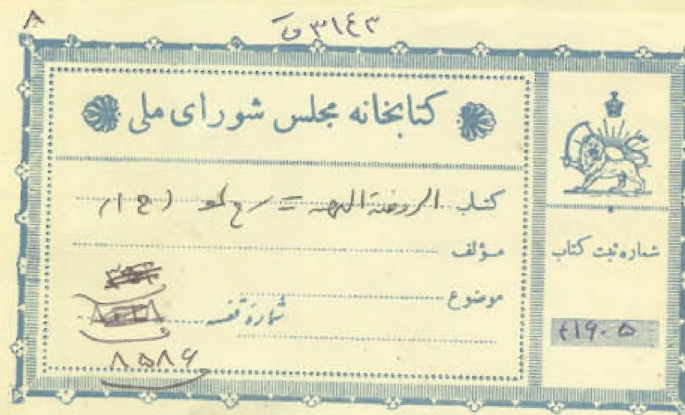 ۸
۳۱۴۳ ق
کتابخانه مجلس شورای ملی
کتاب الروضة البهیه = شرح لمعه (ج ۱)
مؤلف
موضوع
شماره قفسه
۸۵۸۶
شماره ثبت کتاب